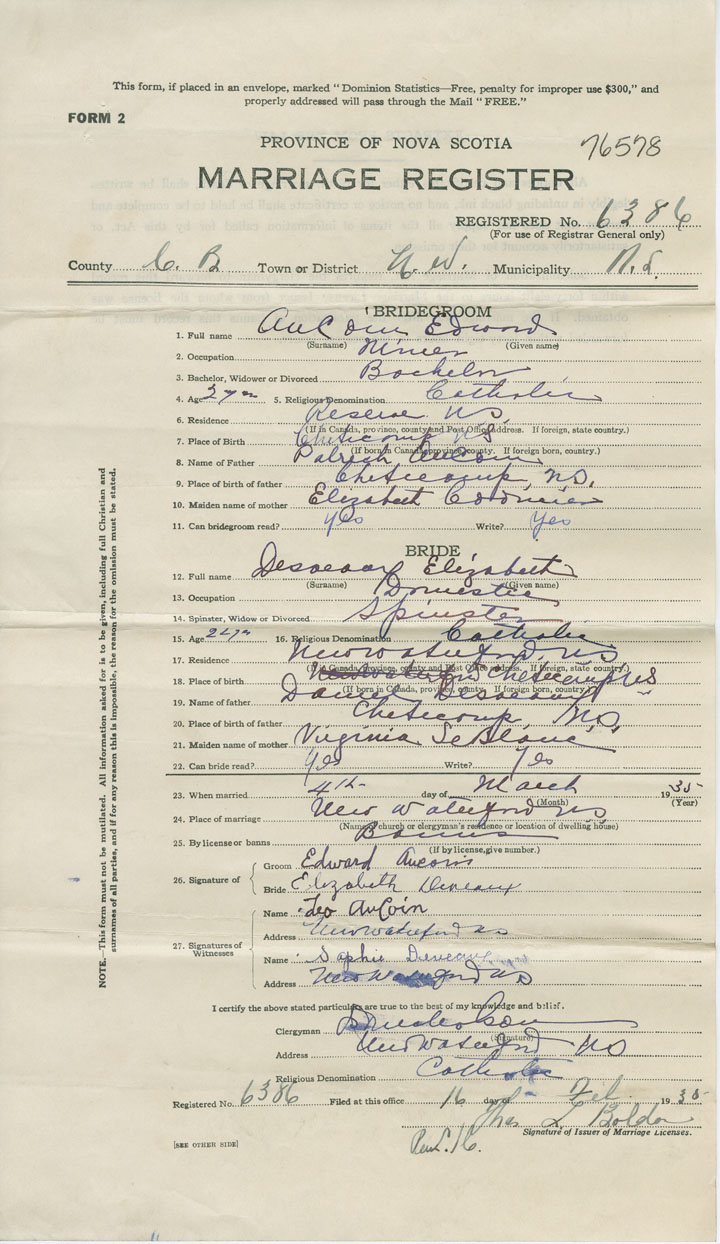 This form, if placed in an envelope, marked "Dominion Statistics—Free, penalty for improper use $300," and
properly addressed will pass through the Mail "FREE."
FORM 2
PROVINCE OF NOVA SCOTIA 76578
MARRIAGE REGISTER
REGISTERED No. 6386
(For use of Registrar General only)
County C. B Town or District N. W. Municipality N. S.
BRIDEGROOM
1. Full name AuCoin Edward
(Surname) (Given name)
2. Occupation Miner
3. Bachelor, Widower or Divorced Bachelor
4. Age 5. Religious Denomination Catholic
6. Residence Reserve N S.
(If in Canada, province, county and Post Office address. If foreign, state country.)
7. Place of Birth Cheticamp N S
(If born in Canada, province, county. If foreign born, country.)
8. Name of Father Patrick AuCoin
9. Place of birth of father Cheticamp, N S.
10. Maiden name of mother Elizabeth
11. Can bridegroom read? Yes Write? Yes
BRIDE
12. Full name Elizabeth
(Surname) (Given name)
13. Occupation Domestic
14. Spinster, Widow or Divorced Spinster
15. Age 16. Religious Denomination Catholic
17. Residence New Waterford, NS
(If in Canada, province, county and Post Office address. If foreign, state country.)
18. Place of birth Cheticamp NS
(If born in Canada, province, county. If foreign born, country.)
19. Name of father Daniel
20. Place of birth of father Cheticamp, N S,
21. Maiden name of mother Virginia LeBlanc
22. Can bride read? Yes Write? Yes
23. When married 4th day of March 1935
(Month) (Year)
24. Place of marriage New Waterford NS
(Name of church or clergyman's residence or location of dwelling house)
25. By license or banns Banns
(If by license, give number.)
26. Signature of Groom Edward Aucoin
Bride Elizabeth Deveaux
27. Signatures of Witnesses
Name Leo AuCoin
Address New Waterford NS
Name Sophie Deveaux
Address New Waterford NS
I certify the above stated particulars are true to the best of my knowledge and belief.
Clergyman
(Signature)
Address New Waterford NS
Religious Denomination Catholic
Registered No. 6386 Filed at this office 16 day of Feb. 1935
Signature of Issuer of Marriage Licenses.
[SEE OTHER SIDE]
NOTE.—This form must not be mutilated. All information asked for is to be given, including full Christian and
surnames of all parties, and if for any reason this is impossible, the reason for the omission must be stated.